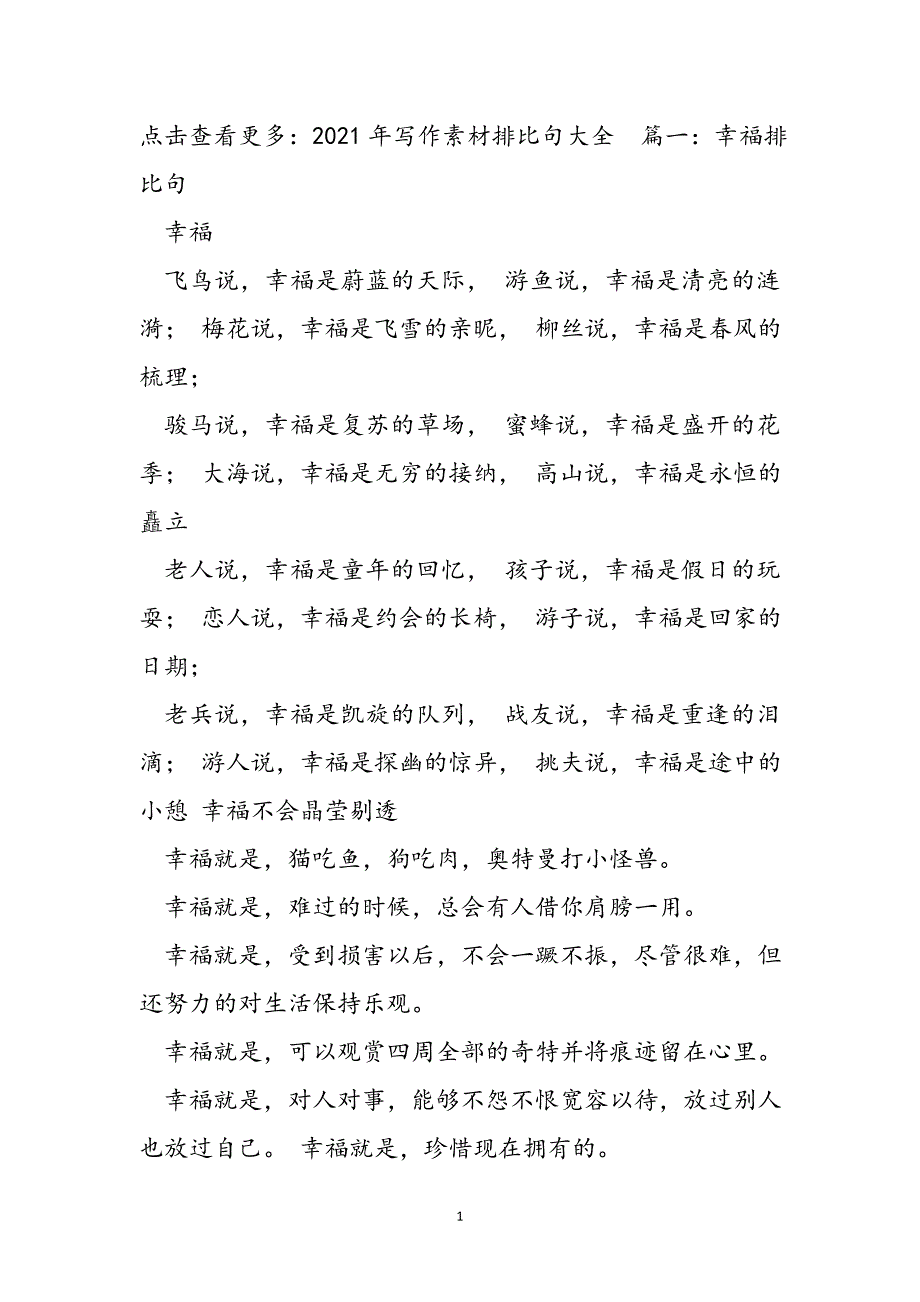 点击查看更多：2021 年写作素材排比句大全　篇一：幸福排
比句
幸福
飞鸟说，幸福是蔚蓝的天际， 游鱼说，幸福是清亮的涟
漪； 梅花说，幸福是飞雪的亲昵， 柳丝说，幸福是春风的
梳理；
骏马说，幸福是复苏的草场， 蜜蜂说，幸福是盛开的花
季； 大海说，幸福是无穷的接纳， 高山说，幸福是永恒的
矗立
老人说，幸福是童年的回忆， 孩子说，幸福是假日的玩
耍； 恋人说，幸福是约会的长椅， 游子说，幸福是回家的
日期；
老兵说，幸福是凯旋的队列， 战友说，幸福是重逢的泪
滴； 游人说，幸福是探幽的惊异， 挑夫说，幸福是途中的
小憩 幸福不会晶莹剔透
幸福就是，猫吃鱼，狗吃肉，奥特曼打小怪兽。
幸福就是，难过的时候，总会有人借你肩膀一用。
幸福就是，受到损害以后，不会一蹶不振，尽管很难，但
还努力的对生活保持乐观。
幸福就是，可以观赏四周全部的奇特并将痕迹留在心里。
幸福就是，对人对事，能够不怨不恨宽容以待，放过别人
也放过自己。 幸福就是，珍惜现在拥有的。
1